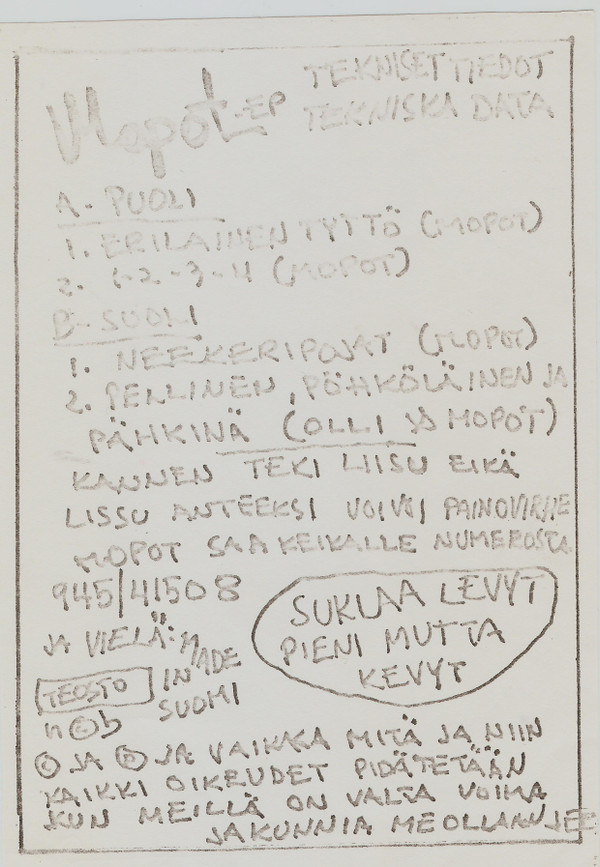 Mopot-EP TEKNISET TIEDOT
TEKNISKA DATA
A-PUOLI
1. ERILAINEN TYTTÖ (MOPOT)
2. 1-2-3-4 (MOPOT)
B-SUOLI
1. NEEKERIPOJAT (MOPOT)
2. PELLINEN, PÖHKÖLÄINEN JA
PÄHKINÄ (OLLI JA MOPOT)
KANNEN TEKI LIISU EIKÄ
LISSU ANTEEKSI VOIVOI PAINOVIRHE
MOPOT SAA KEIKALLE NUMEROSTA
945/41508
JA VIELÄ: MADE
IN
SUOMI
TEOSTO
n©b
SUKLAA LEVYT
PIENI MUTTA
KEVYT
© JA Ⓟ JA VAIKKA MITÄ JA NIIN
KAIKKI OIKEUDET PIDÄTETÄÄN
KUN MEILLÄ ON VALTA VOIMA
JA KUNNIA ME OLLAAN JEE